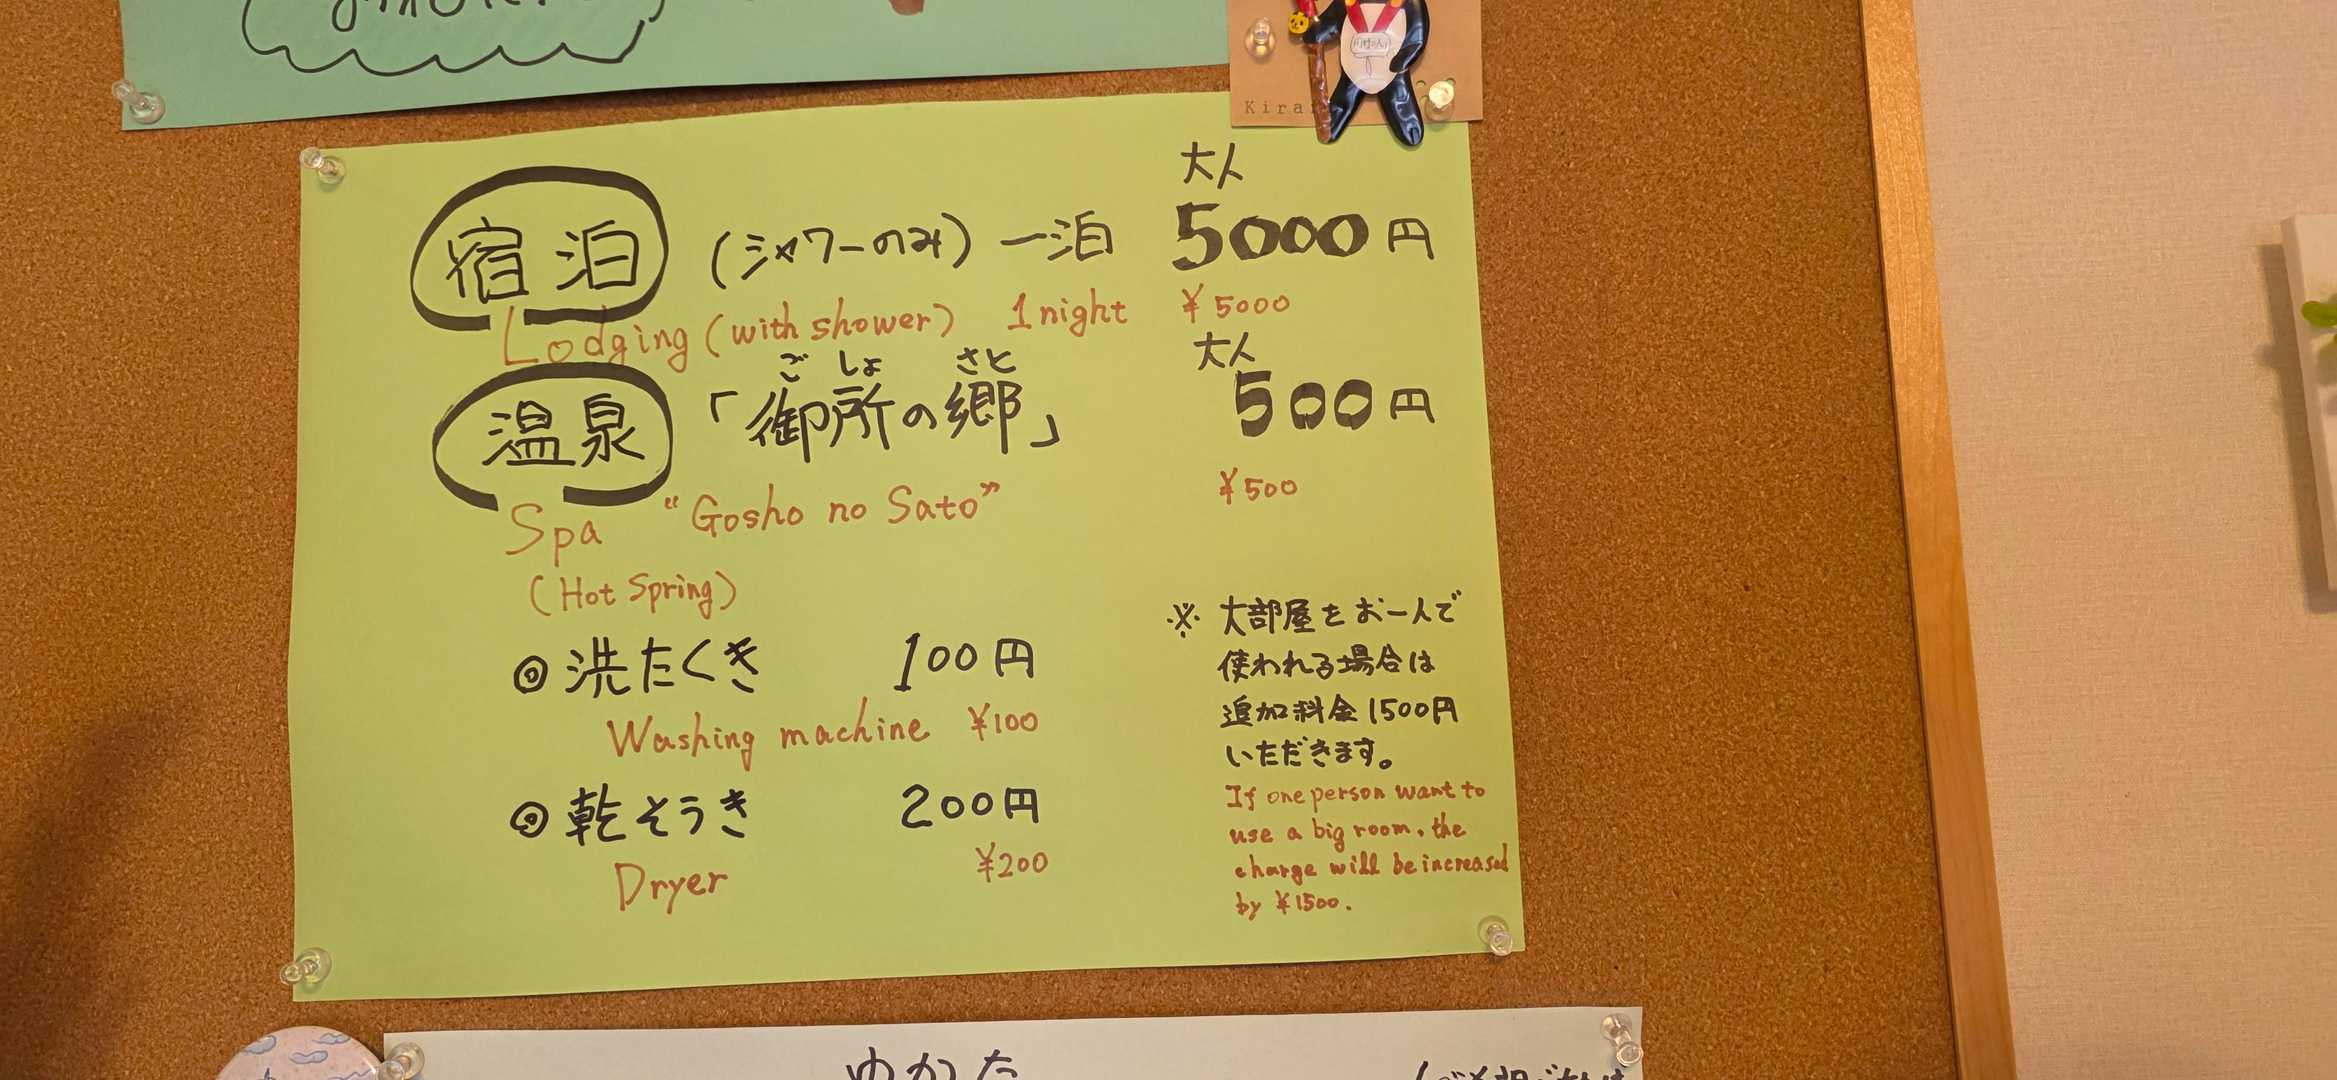 Kira
大人
宿泊 (シャワーのみ) 一泊 5000円
Lodging (with shower) 1night ¥5000
大人
ごしょ さと
温泉 「御所の郷」 500円
Spa "Gosho no Sato" ¥500
(Hot Spring)
◎ 洗たくき 100円
Washing machine ¥100
◎ 乾そうき 200円
Dryer ¥200
※ 大部屋をお一人で
使われる場合は
追加料金1500円
いただきます。
If one person want to
use a big room, the
charge will be increased
by ¥1500.
ゆかた